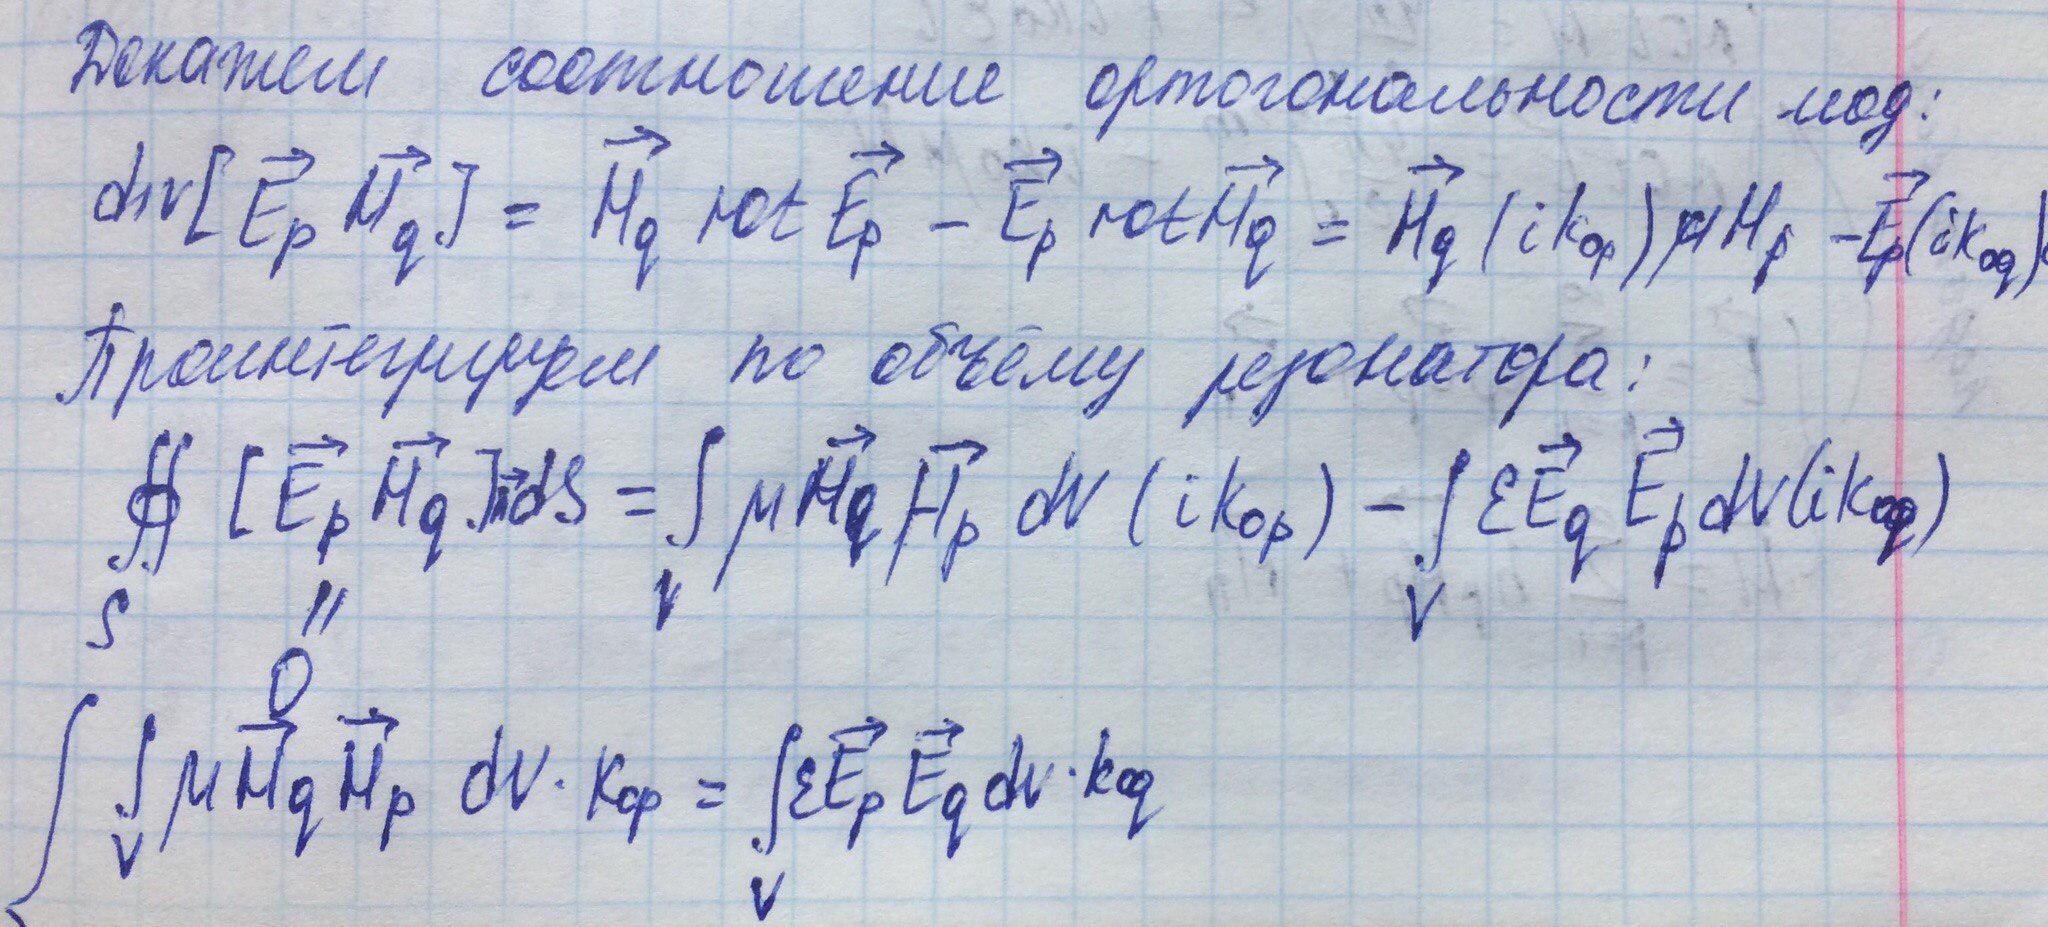 Докажем соотношение ортогональности мод:
div[E⃗p H⃗q] = H⃗q rot E⃗p − E⃗p rot H⃗q = H⃗q (ik₀p) μHp − E⃗p(ik₀q)
Проинтегрируем по объёму резонатора:
∯ [E⃗p H⃗q]n⃗dS = ∫ μH⃗q H⃗p dV (ik₀p) − ∫ εE⃗q E⃗p dV(ik₀q)
S " V V
0
{ ∫ μH⃗q H⃗p dV · k₀p = ∫ εE⃗p E⃗q dV · k₀q
V V